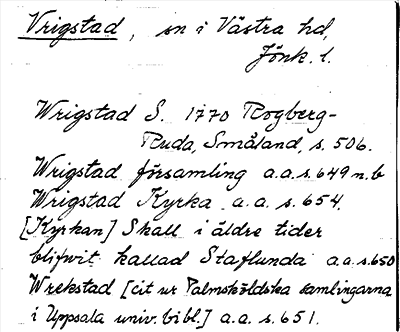 Vrigstad, sn i Västra hd,
Jönk. l.
Wrigstad S. 1770 Rogberg-
Ruda, Småland, s. 506.
Wrigstad församling a.a.s. 649 n.b
Wrigstad Kyrka a.a. s. 654.
[Kyrkan] Skall i äldre tider
blifwit kallad Staflunda a.a.s.650
Wrekstad [cit ur Palmsköldska samlingarna
i Uppsala univ. bibl.] a.a. s. 651.